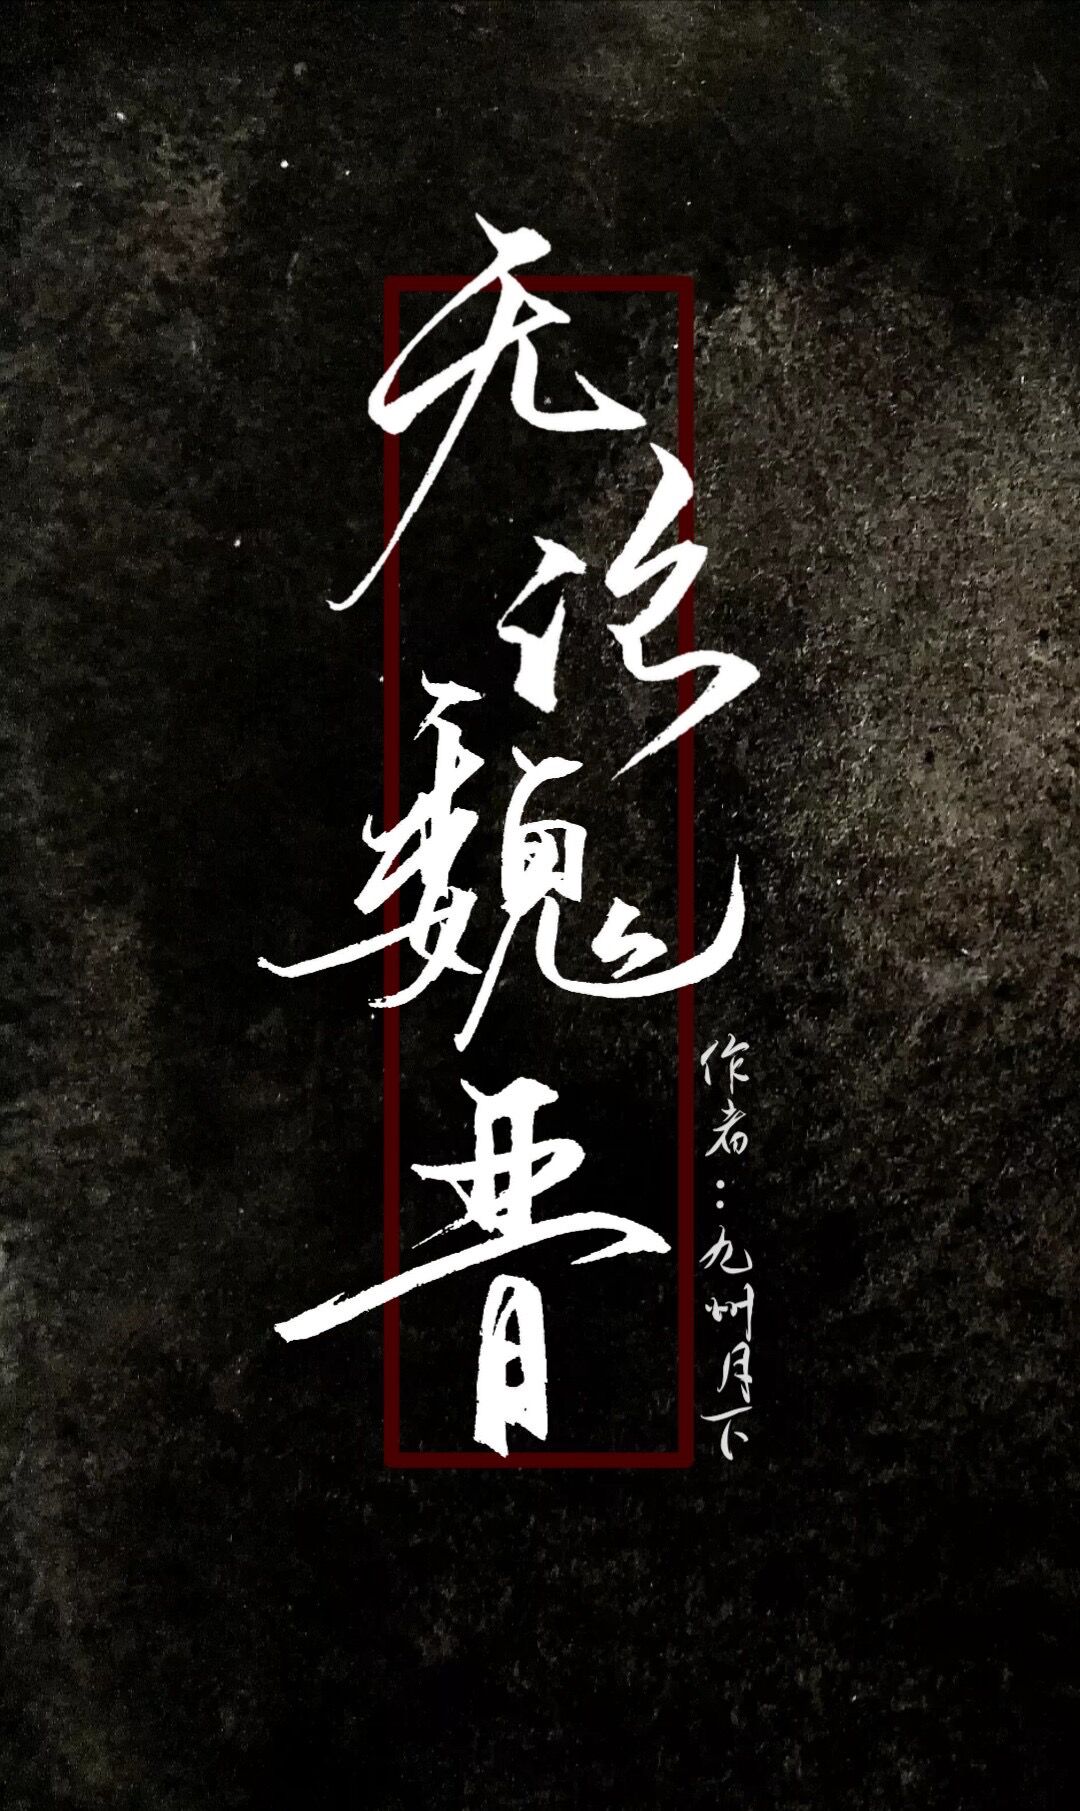 无论魏晋
作者：九州月下